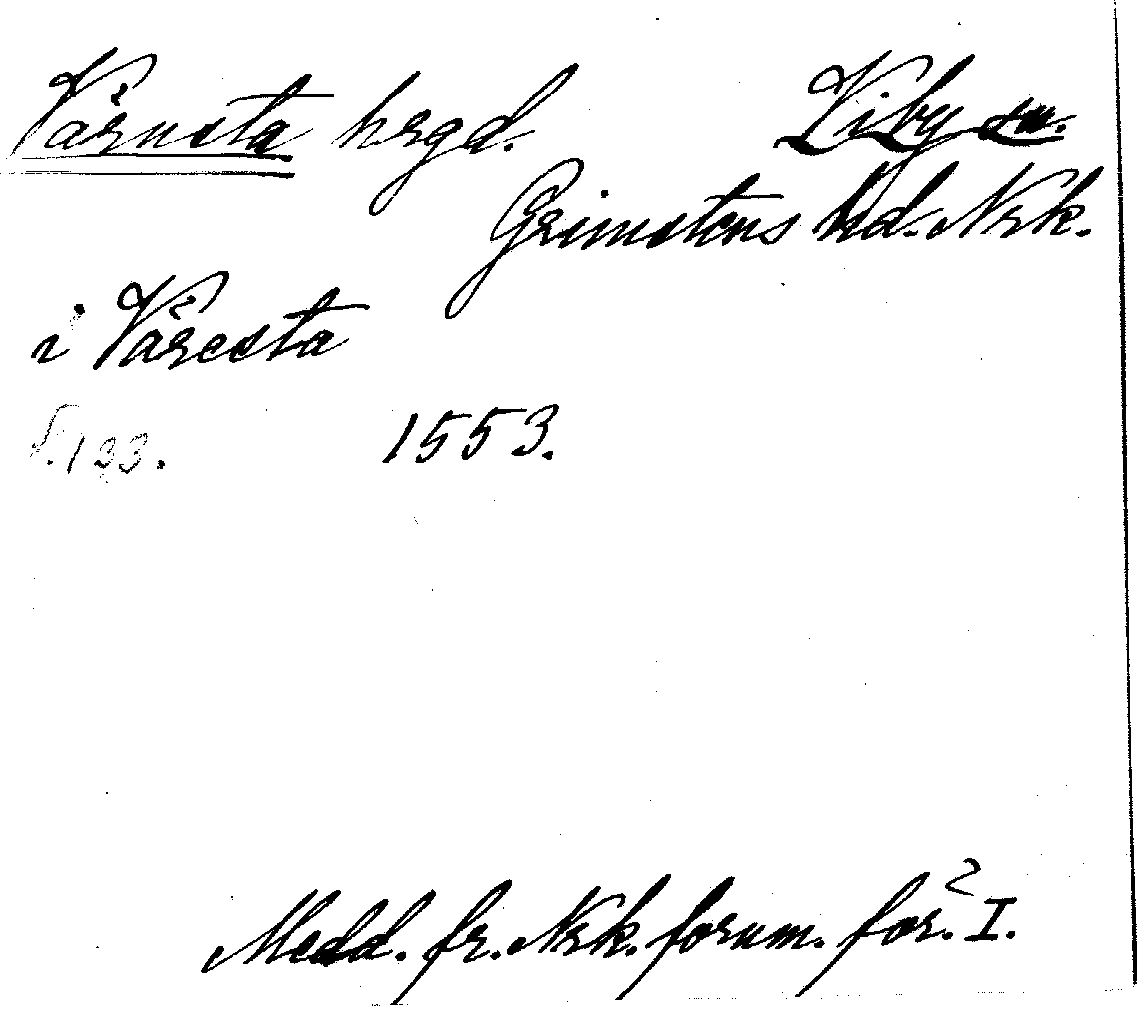 Vårnsta hrgd. Viby sn.
Grimstens hd. Nrk.
i Våresta
s. 193. 1553.
Medd. fr. Nrk. fornm. för. I.